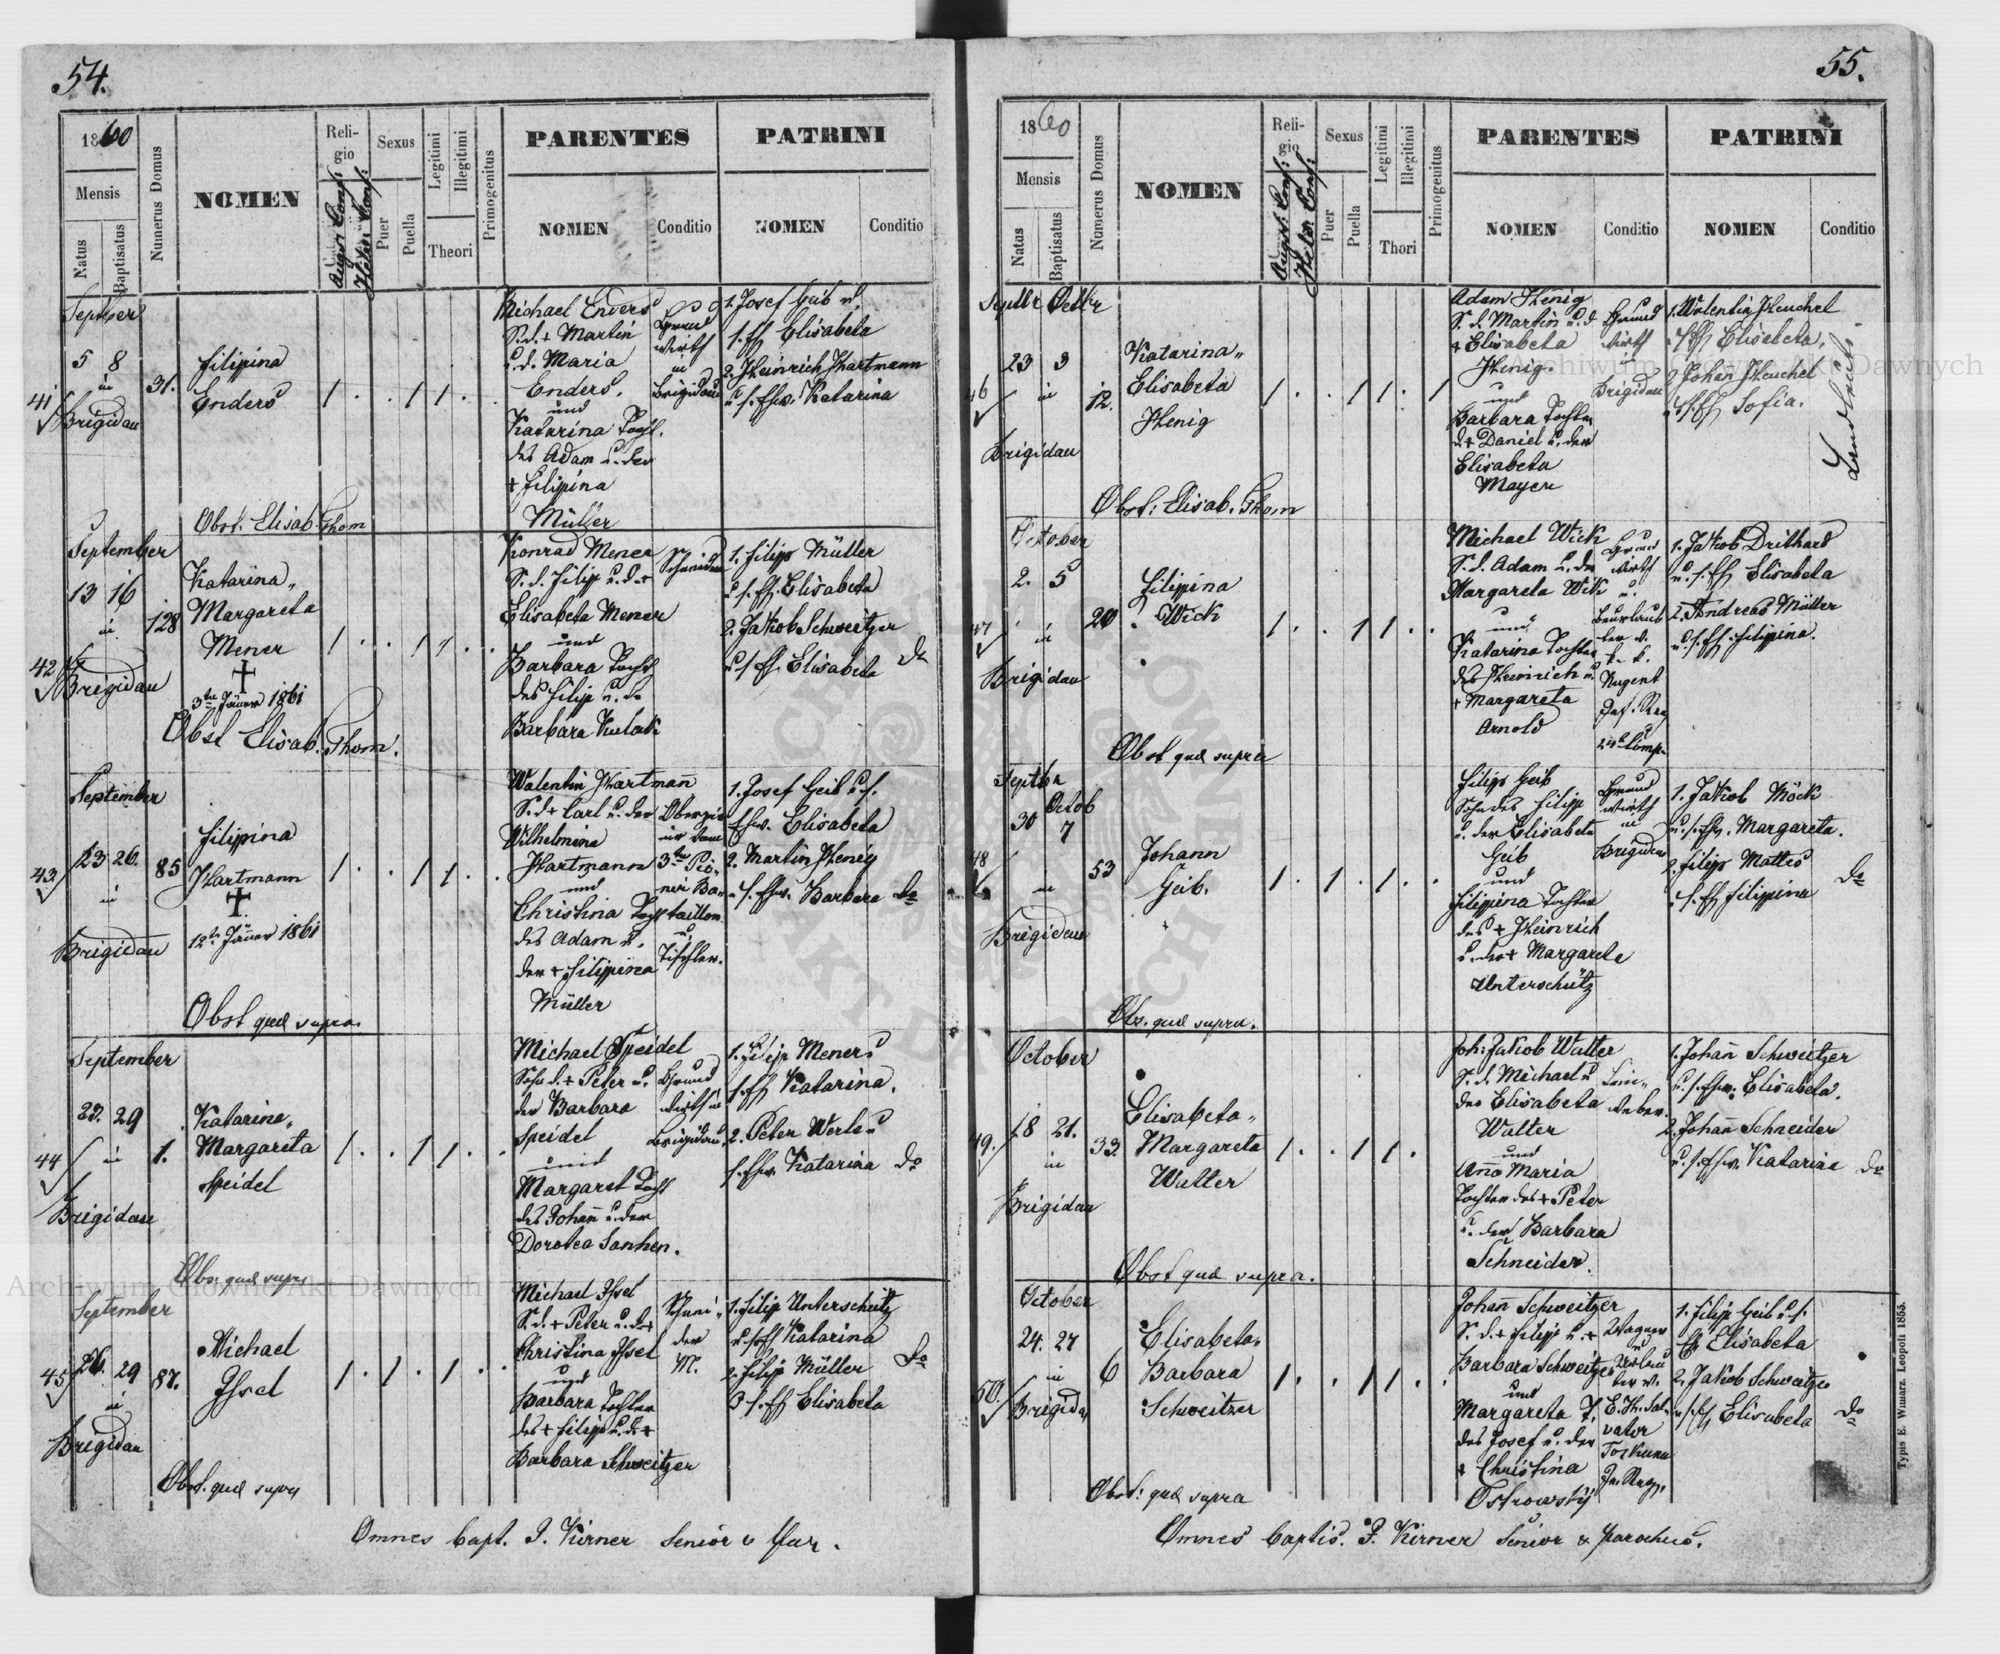 54.
1860
Mensis
Natus
Baptisatus
Numerus Domus
NOMEN
Reli-
gio
August: Conf:
Helv: Conf:
Sexus
Puer
Puella
Legitimi
Illegitimi
Theori
Primogenitus
PARENTES
NOMEN
Conditio
PATRINI
NOMEN
Conditio
41
September
5 8
in
Brigidau
31.
Filippina
Enders
Obst. Elisab. Thom
Michael Enders
S. d. + Martin
u. d. Maria
Enders.
und
Katarina Tocht.
des Adam u. der
+ Filippina
Müller
Grund
wirth
in
Brigidau
1. Josef Geib u.
s. Ehf Elisabeta
2. Heinrich Hartmann
u. s. Ehw. Katarina
42
September
13 16
in
Brigidau
128
Katarina
Margareta
Mener
+
3ten Jäner 1861
Obst Elisab. Thom.
Konrad Mener
S. d. Filip u. d. +
Elisabeta Mener
und
Barbara Tocht
des Filip u. d.
Barbara Kulak
Schneider
1. Filipp Müller
u. s. Ehf. Elisabeta
2. Jakob Schweitzer
u. s. Ehf. Elisabeta
do
43
September
23 26.
in
Brigidau
85
Filipina
Hartmann
+
12ten Jäner 1861
Obst quæ supra.
Walentin Hartmann
S. d + Carl u. der
Wilhelmina
Hartmann
und
Christina Tocht
des Adam u.
der + Filippina
Müller
3ten Pio-
nir Ba-
taillon
u.
Tischler.
1. Josef Geib u. s.
Ehw. Elisabeta
2. Martin Henig
u. s. Ehw. Barbara
do
44
September
23. 29
in
Brigidau
1.
Katarina
Margareta
Speidel
Obs: quæ supra
Michael Speidel
Sohn d. + Peter u.
der Barbara
Speidel
und
Margaret Tocht
des Johann u. der
Dorotea Sanhen.
Grund
wirth in
Brigidau
1. Filip Mener u
s. Ehf Katarina.
2. Peter Werle u
s. Ehw. Katarina
do
45
September
26. 29
in
Brigidau
87.
Michael
Issel
Obst. quæ supra
Michael Issel
S. d. + Peter u. d. +
Christina Issel
und
Barbara Tochter
des + Filipp u. d. +
Barbara Schweitzer
Schnei-
der
M.
1. Filip Unterschütz
u. s. Ehf Katarina
2. Filip Müller
u. s. Ehf Elisabeta
do
Omnes bapt. J. Kirner Senior & Par.
55.
1860
Mensis
Natus
Baptisatus
Numerus Domus
NOMEN
Reli-
gio
August: Conf:
Helv: Conf:
Sexus
Puer
Puella
Legitimi
Illegitimi
Thori
Primogenitus
PARENTES
NOMEN
Conditio
PATRINI
NOMEN
Conditio
46
Septbr Octbr
23 3
in
Brigidau
12.
Katarina
Elisabeta
Henig
Obst: Elisab. Thom
Adam Henig
S. d. Martin u. d
+ Elisabeta
Henig.
und
Barbara Tochter
d. + Daniel u. der
Elisabeta
Mayer
Grund
wirth
in
Brigidau
1. Walentin Heuchel
u. s. Ehf Elisabeta.
2. Johan Heuchel
u. s. Ehf Sofia.
Landleute
47
October
2. 5
in
Brigidau
20
Filippina
Wick
Obst quæ supra
Michael Wick
S. d. Adam u. der
Margareta Wick
und
Katarina Tochter
des Heinrich u
+ Margareta
Arnold
Grund
wirth
u.
Beurlaub
ter v.
k. k.
Nugent
Inf. Reg
1. Jakob Drithard
u. s. Ehf Elisabeta
2. Andreas Müller
u. s. Ehf. Filippina.
48
Septbr
Octob
30 7
in
Brigidau
53
Johann
Geib.
Obs. quæ supra.
Filipp Geib
Sohn des Filipp
u. der Elisabeta
Geib
und
Filippina Tochter
des + Heinrich
u. der + Margareta
Unterschütz
Grund
wirth
in
Brigidau
1. Jakob Möck
u. s. Ehf. Margareta.
2. Filipp Mattes
u. s. Ehf Filippina
do
49.
October
18 21.
in
Brigidau
33.
Elisabeta
Margareta
Walter
Obst quæ supra.
Joh: Jakob Walter
S. d. Michael u
der Elisabeta
Walter
und
Anna Maria
Tochter des + Peter
u. der Barbara
Schneider.
Lein-
weber.
1. Johann Schweitzer
u. s. Ehw. Elisabeta.
2. Johann Schneider
u. s. Ehw. Katarina
do
50.
October
24. 27
in
Brigidau
6
Elisabeta
Barbara
Schweitzer
Obst: quæ supra
Johann Schweitzer
S. d. + Filipp u. +
Barbara Schweitzer
und
Margareta T.
des Josef u. der
+ Christina
Ostrowsky
Wagner
u
Urlau
ber v.
E. H. Sal-
vator
Toskana
In. Reg.
1. Filip Geib u. s.
Ehf Elisabeta
2. Jakob Schweitzer
u. s. Ehf Elisabeta
do
Omnes baptis. J. Kirner Senior & parochus.
Typis E. Winiarz. Leopoli 1855.
Archiwum Główne Akt Dawnych
Archiwum Główne Akt Dawnych